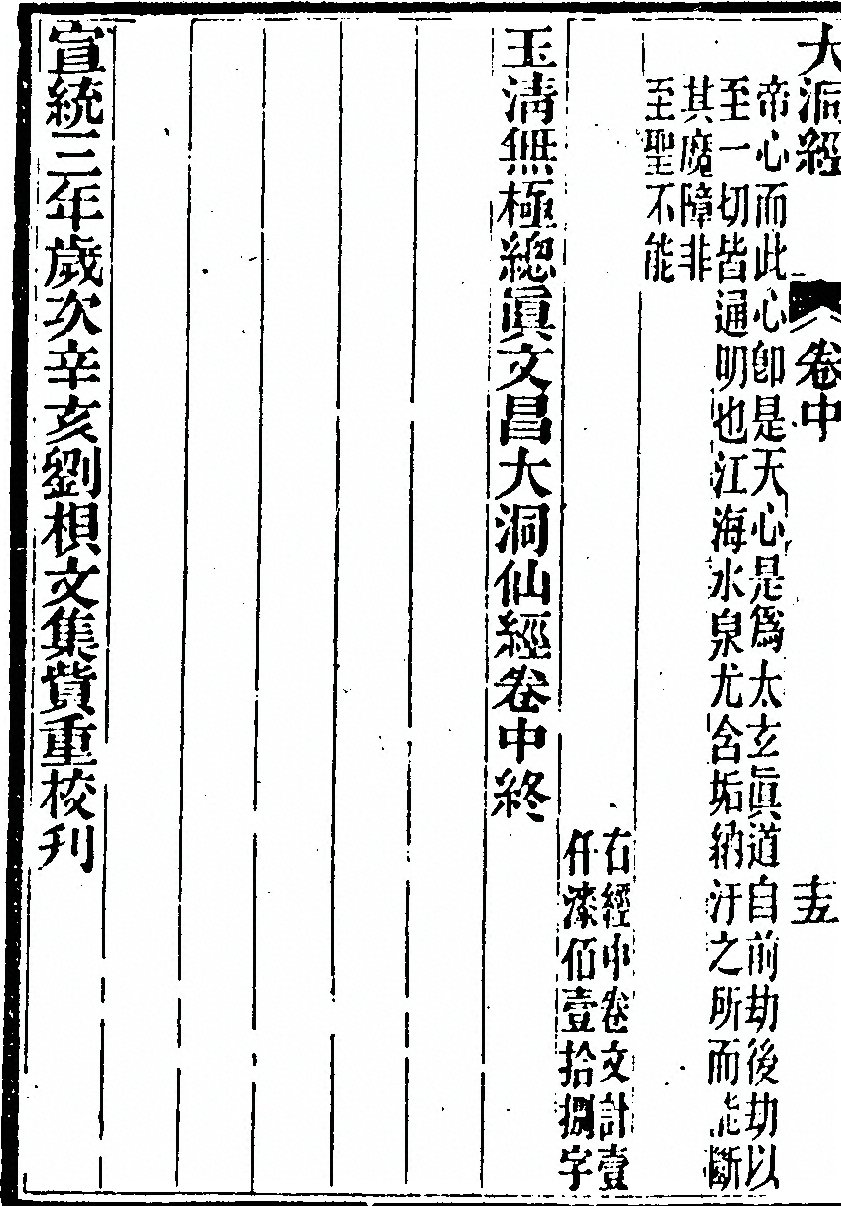 大洞經 卷中 十五
帝心而此心卽是天心是爲太玄眞道自前劫後劫以
至一切皆通明也江海水泉尤含垢納汙之所而能斷
其魔障非
至聖不能
右經中卷文計壹
仟漆佰壹拾捌字
玉淸無極總眞文昌大洞仙經卷中終
宣統三年歲次辛亥劉椇文集貲重校刋